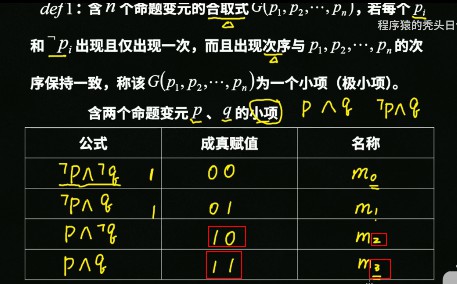 def1：含n个命题变元的合取式G(p₁,p₂,⋯,pₙ)，若每个pᵢ
程序猿的秃头日
和¬pᵢ出现且仅出现一次，而且出现次序与p₁,p₂,⋯,pₙ的次
序保持一致，称该G(p₁,p₂,⋯,pₙ)为一个小项（极小项）。
含两个命题变元p、q的小项 p∧q ¬p∧q
公式 成真赋值 名称
¬p∧¬q 1 00 m₀
¬p∧q 1 01 m₁
p∧¬q 10 m₂
p∧q 11 m₃